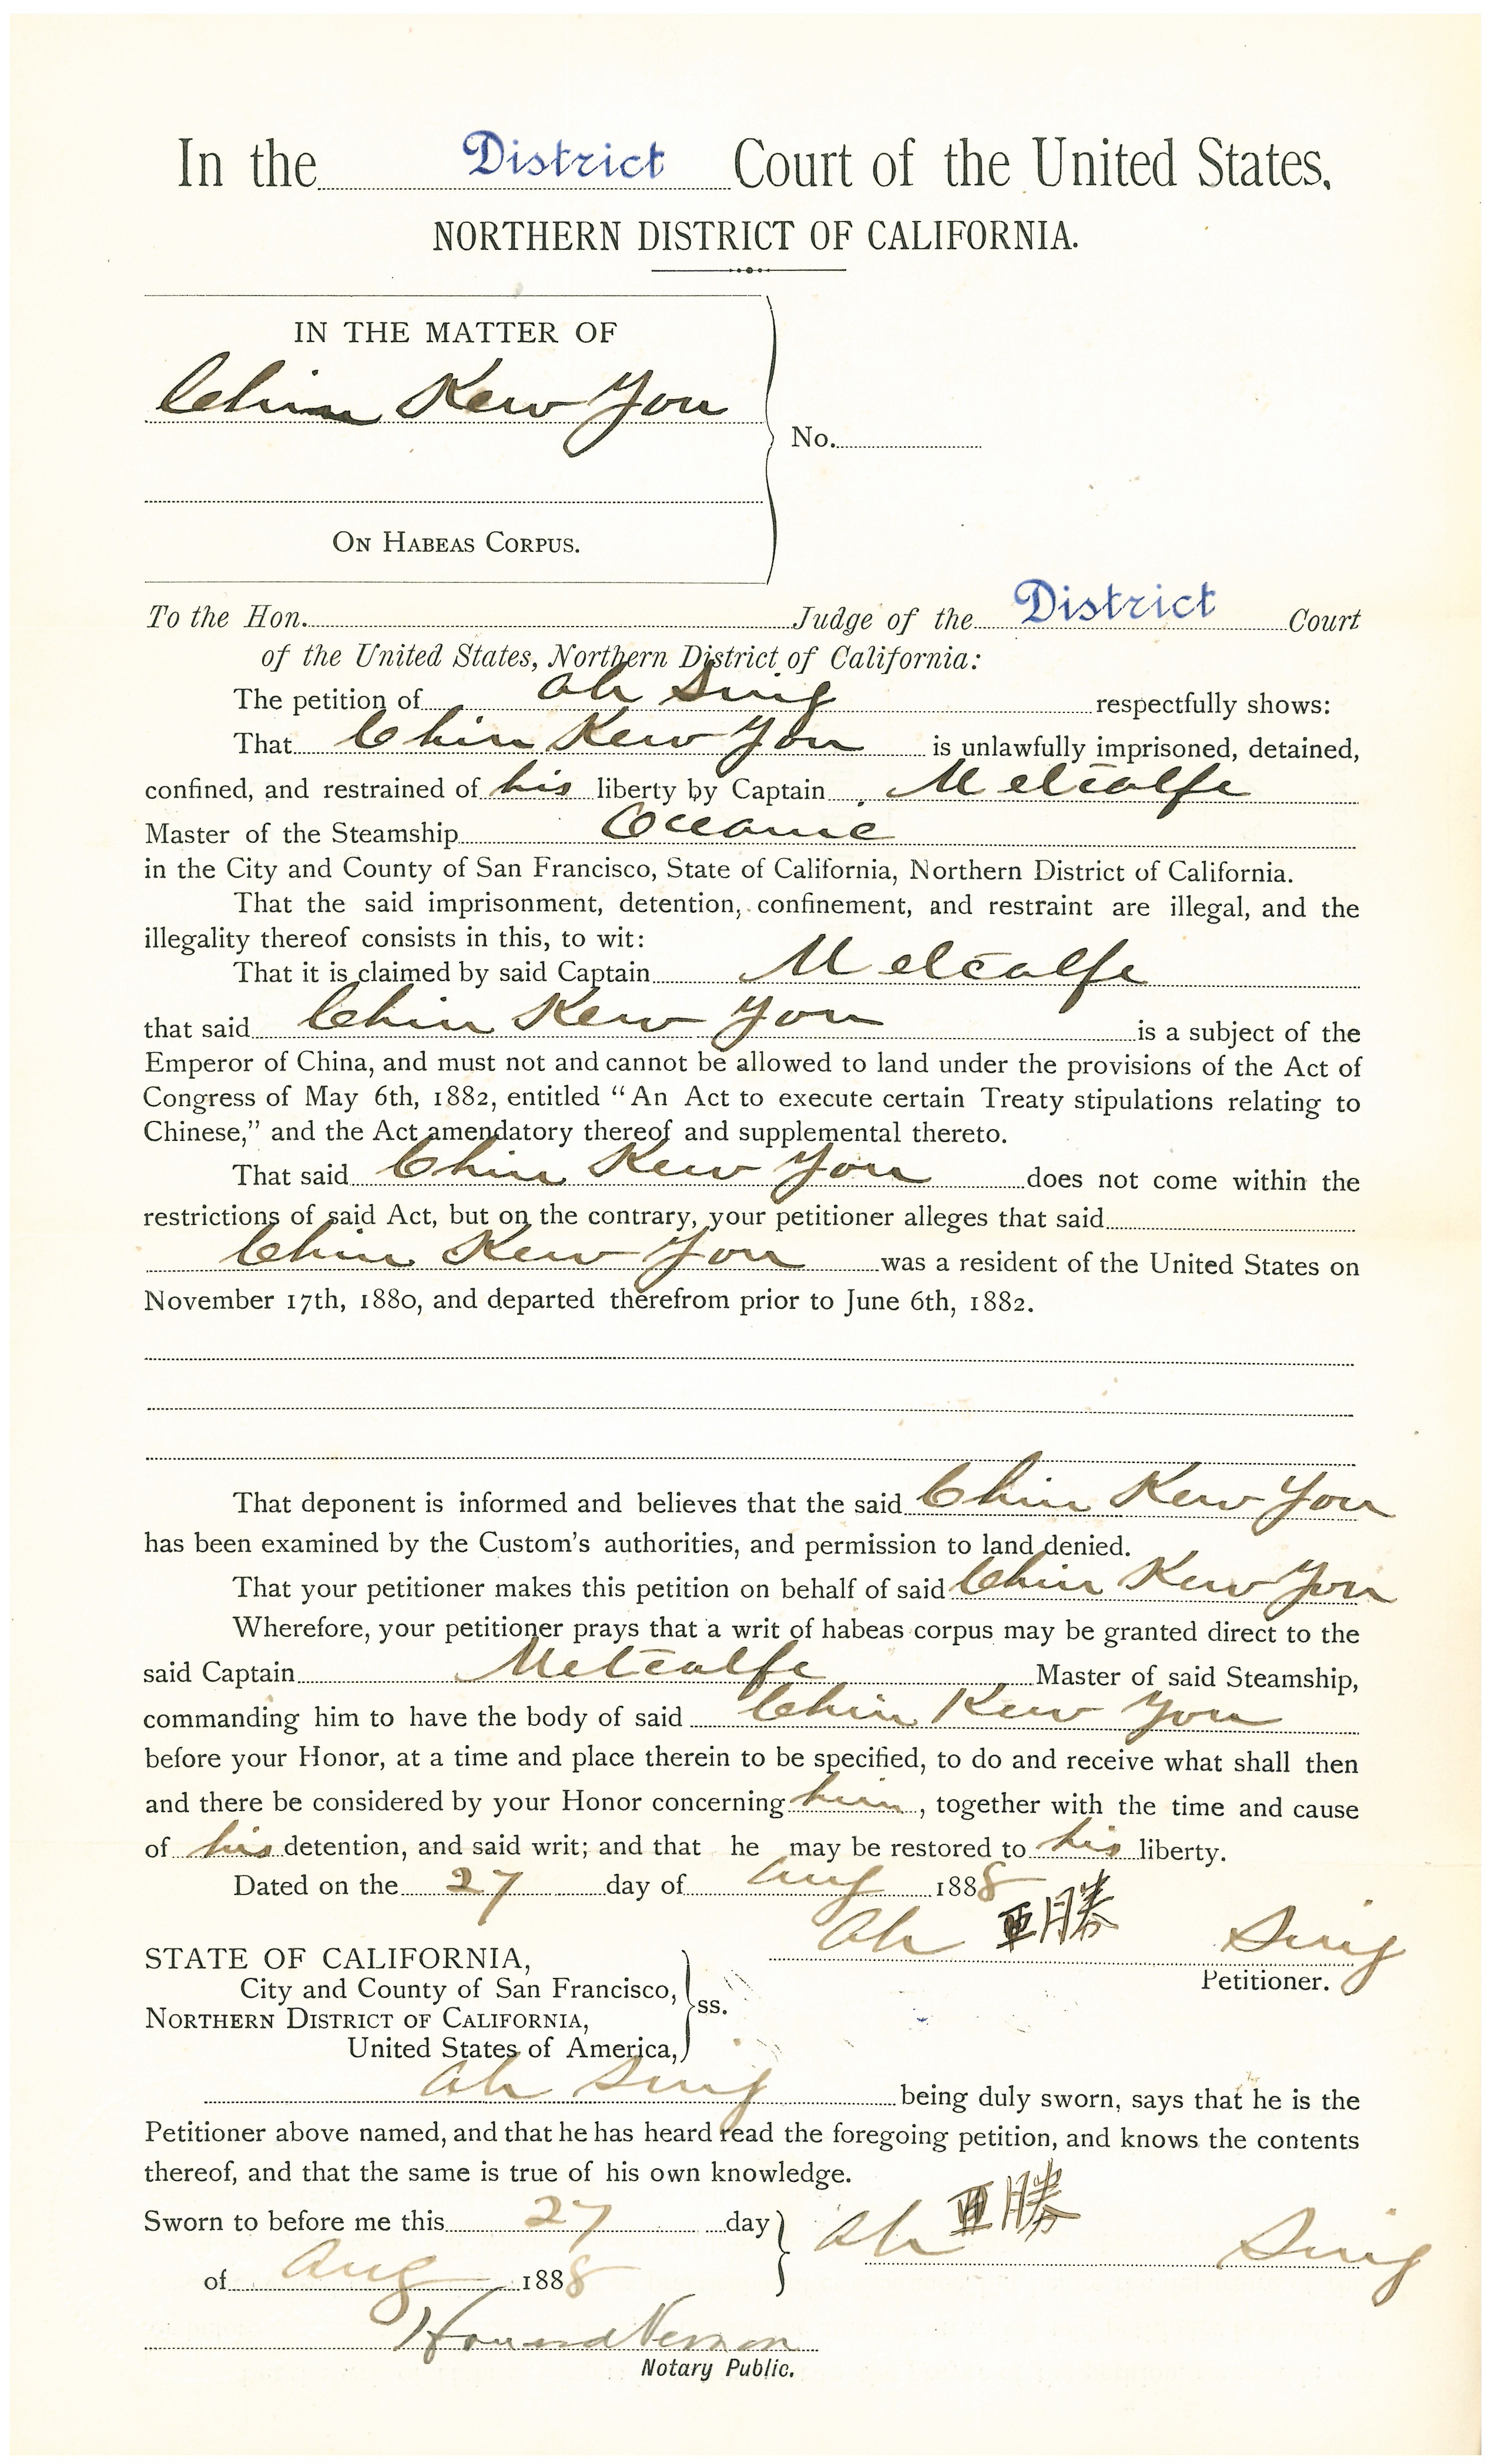 In the District Court of the United States,
NORTHERN DISTRICT OF CALIFORNIA.
IN THE MATTER OF
Chin Kew You
No.
ON HABEAS CORPUS.
To the Hon. Judge of the District Court
of the United States, Northern District of California:
The petition of Ah Sing respectfully shows:
That Chin Kew You is unlawfully imprisoned, detained,
confined, and restrained of his liberty by Captain Metcalfe
Master of the Steamship Oceanic
in the City and County of San Francisco, State of California, Northern District of California.
That the said imprisonment, detention, confinement, and restraint are illegal, and the
illegality thereof consists in this, to wit:
That it is claimed by said Captain Metcalfe
that said Chin Kew You is a subject of the
Emperor of China, and must not and cannot be allowed to land under the provisions of the Act of
Congress of May 6th, 1882, entitled "An Act to execute certain Treaty stipulations relating to
Chinese," and the Act amendatory thereof and supplemental thereto.
That said Chin Kew You does not come within the
restrictions of said Act, but on the contrary, your petitioner alleges that said
Chin Kew You was a resident of the United States on
November 17th, 1880, and departed therefrom prior to June 6th, 1882.
That deponent is informed and believes that the said Chin Kew You
has been examined by the Custom's authorities, and permission to land denied.
That your petitioner makes this petition on behalf of said Chin Kew You
Wherefore, your petitioner prays that a writ of habeas corpus may be granted direct to the
said Captain Metcalfe Master of said Steamship,
commanding him to have the body of said Chin Kew You
before your Honor, at a time and place therein to be specified, to do and receive what shall then
and there be considered by your Honor concerning him, together with the time and cause
of his detention, and said writ; and that he may be restored to his liberty.
Dated on the 27 day of Aug 1888
Ah 亞勝 Sing
Petitioner.
STATE OF CALIFORNIA,
City and County of San Francisco,
NORTHERN DISTRICT OF CALIFORNIA,
United States of America,
ss.
Ah Sing being duly sworn, says that he is the
Petitioner above named, and that he has heard read the foregoing petition, and knows the contents
thereof, and that the same is true of his own knowledge.
Sworn to before me this 27 day
of Aug 1888
Ah 亞勝 Sing
Howard Vernon
Notary Public.